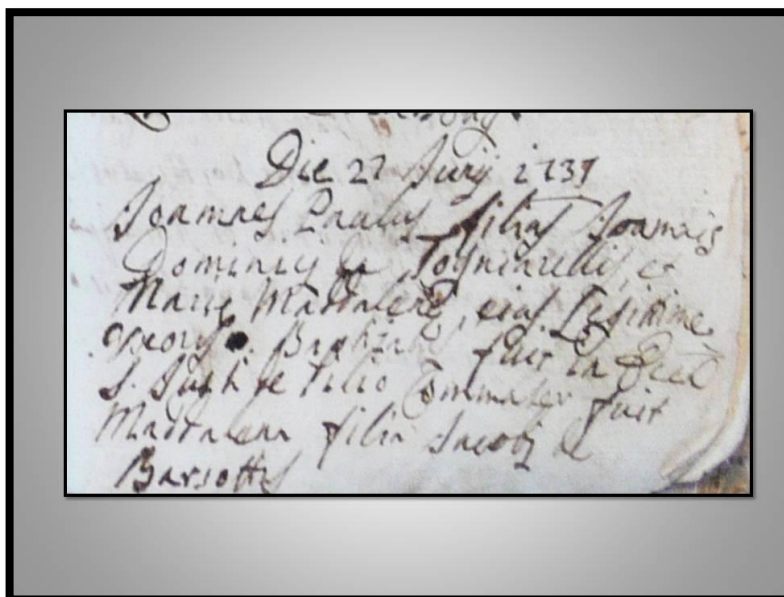 Die 27 Junij 1737
Joannes Paulus filius Joannis
Dominici de Togniarelli, et
Marie Maddalene, eius Legitime
uxoris. Baptizatus fuit in
S. Justi de Commater fuit
Maddalena filia Jacobi de
Barsottis